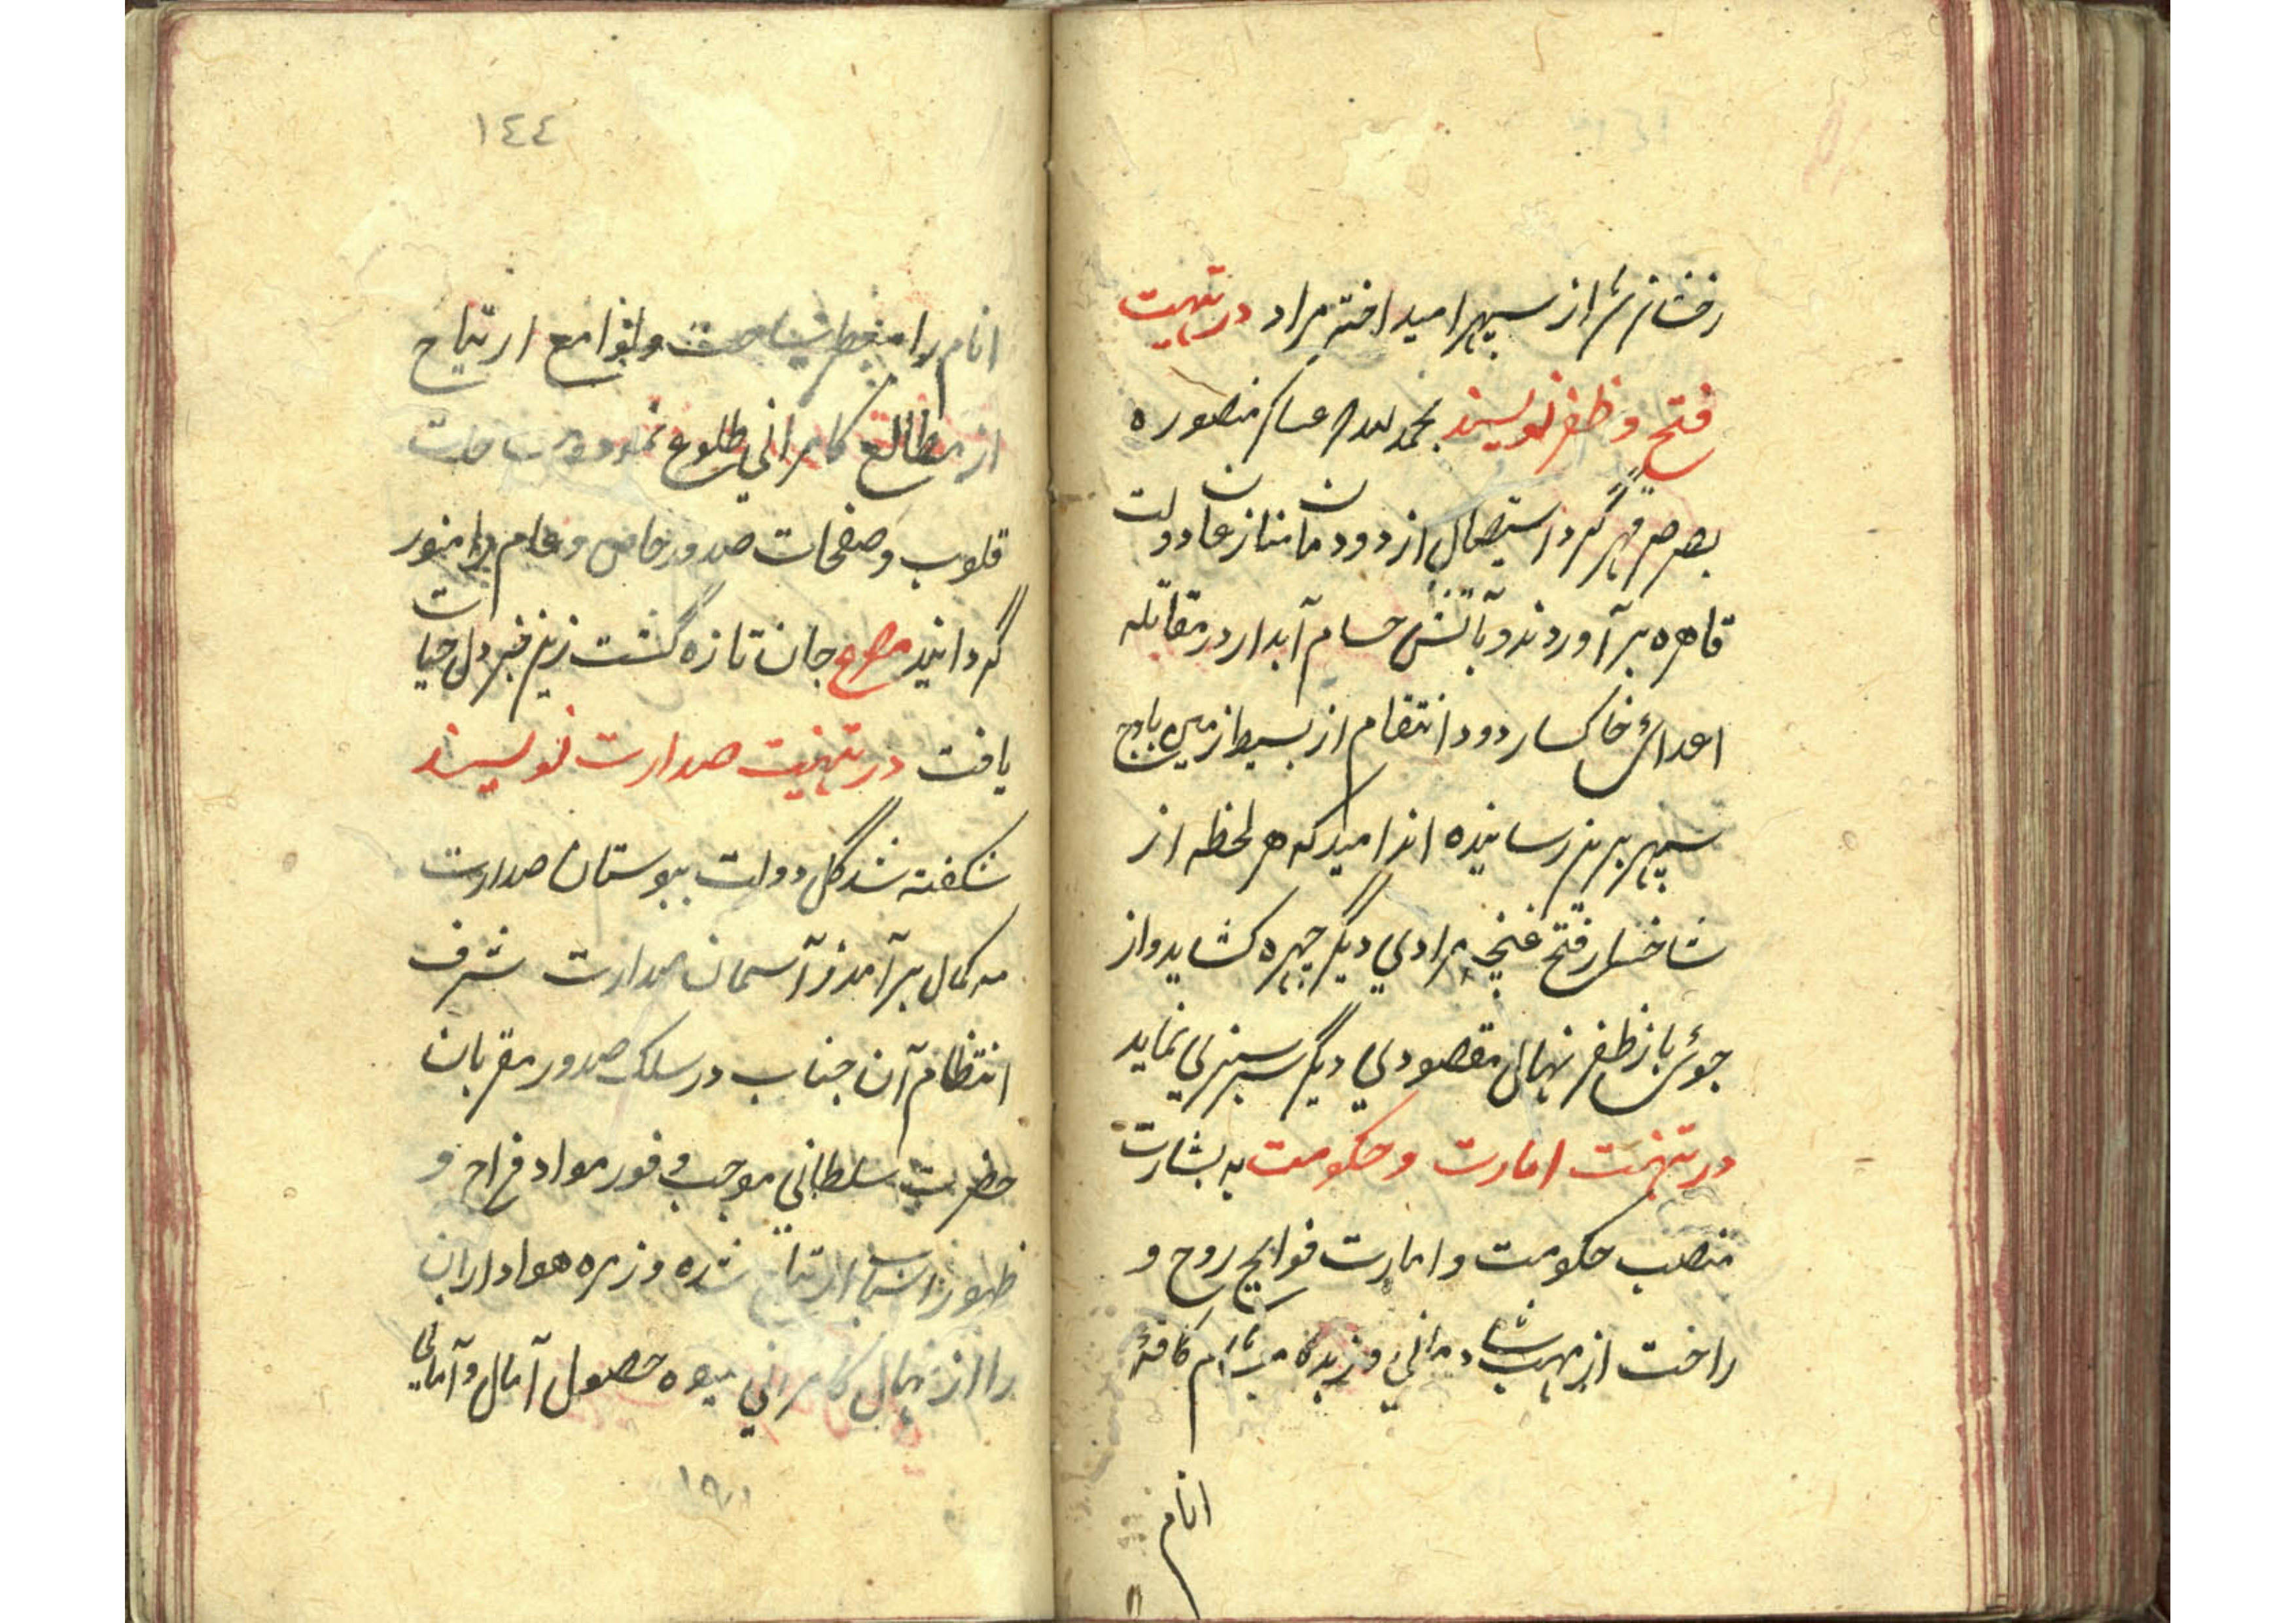 رخشان شد از سپهر امید اختر مراد در تهنیت
فتح و ظفر نویسند بحمد لله عساکر منصوره
بصرصر قهر گرد استیصال از دودمان منازعان دولت
قاهره برآوردند و بآتش حسام آبدار در مقاتله
اعدائ خاکسار دود انتقام از بسیط زمین باوج
سپهر برین رسانیده اند امید که هر لحظه از
شاخسار فتح غنچه مرادی دیگر چهره کشاید و از
جوئبار ظفر نهال مقصودی دیگر سرسبزی نماید
در تهنیت امارت و حکومت به بشارت
منصب حکومت و امارت فوایح روح و
راحت از مهب شادمانی وزید مشام کافهٔ
انام
١٤٤
انام را معطر ساخت و لوامع ارتیاح
از مطالع کامرانی طلوع نمود ساحات
قلوب و صفحات صدور خاص و عام را منور
گردانید مصرع جان تازه گشت زین خبر دل حیات
یافت در تهنیت صدارت نویسند
شکفته شد گل دولت ببوستان صدارت
مه کمال برآمد ز آسمان صدارت شرف
انتظام آن جناب در سلک صدور مقربان
حضرت سلطانی موجب وفور مواد فراح و
ظهور اسباب ارتیاح شده و زمره هواداران
را از نهال کامرانی میوه حصول آمال و آمانی